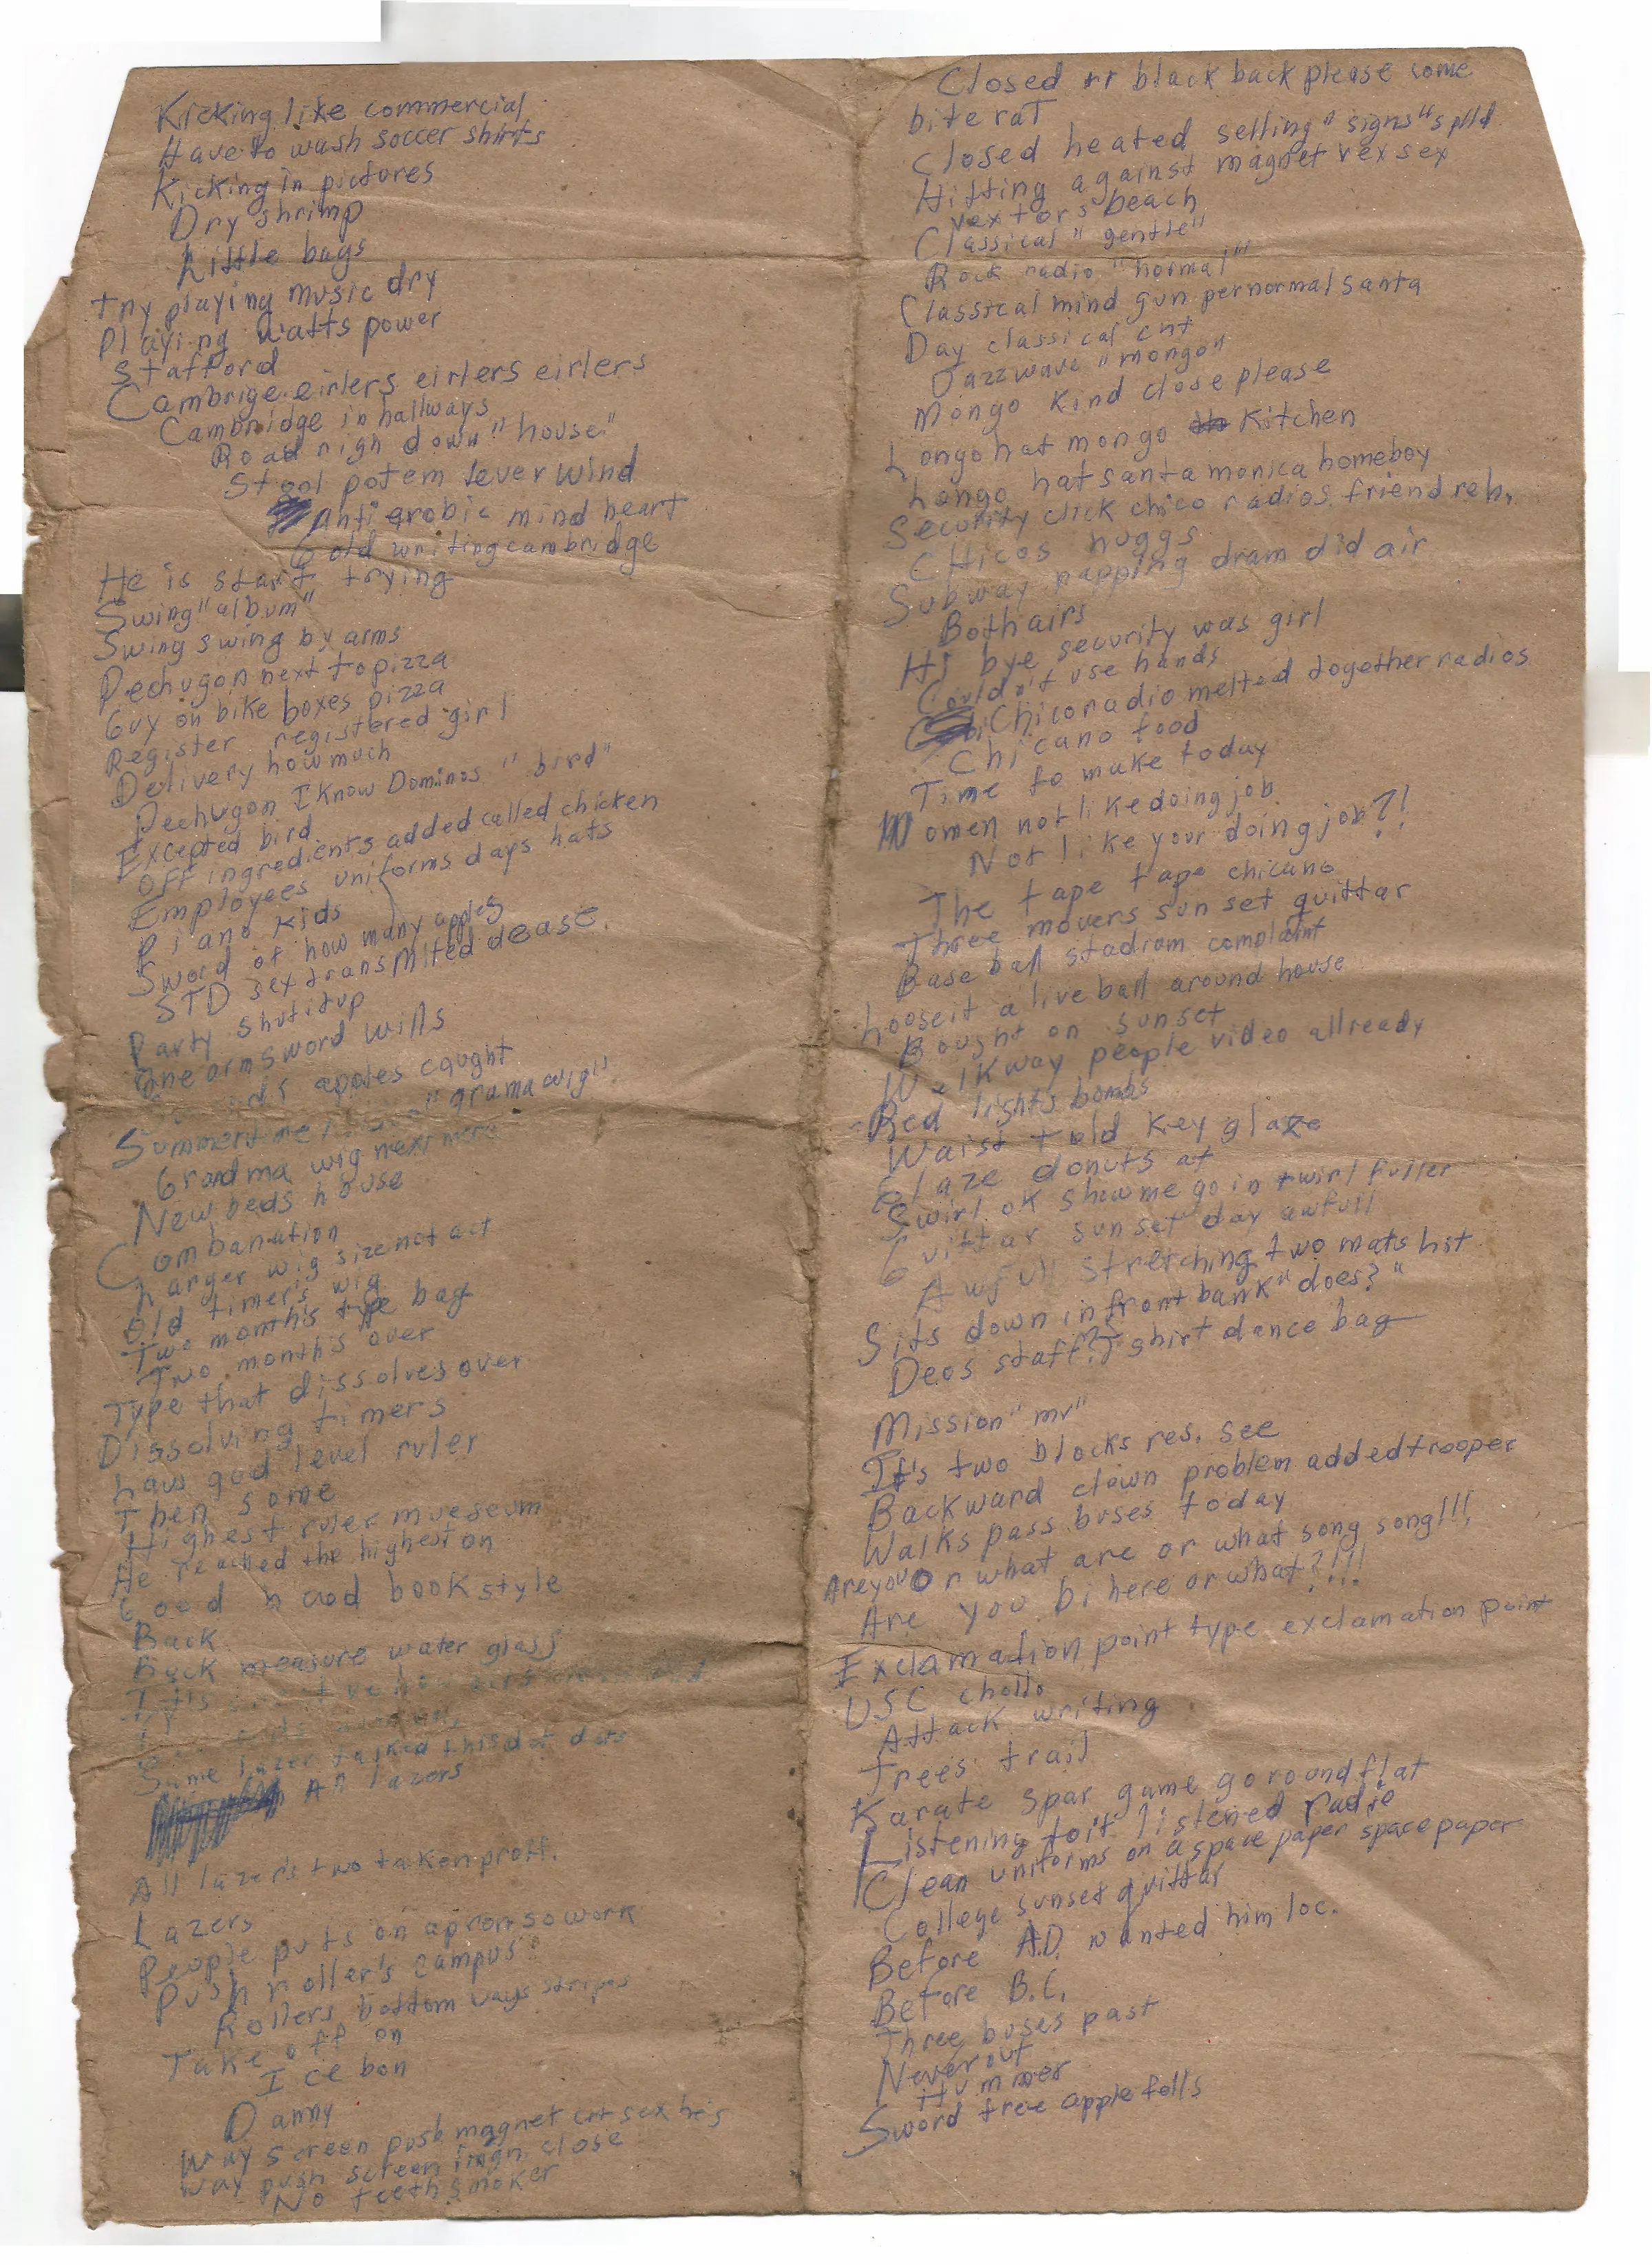 Kicking like commercial
Have to wash soccer shirts
Kicking in pictores
Dry shrimp
Little bags
try playing music dry
Playing watts power
Stafford
Cambrige eirlers eirlers eirlers
Cambridge in hallways
Road nigh down "house"
Stool potem lever wind
Anti arobic mind heart
Gold writing cambridge
He is start trying
Swing "album"
Swing swing by arms
Pechugon next to pizza
Guy on bike boxes pizza
Register registered girl
Delivery how much
Pechugon I know Dominos "bird"
Excepted bird
Off ingredients added called chicken
Employees uniforms days hats
Piano kids
Sword of how many apples
STD sex transmited dease.
Party shutitup
One arm sword wills
apples caught
Summertime "grama wig"
Grandma wig next
New beds house
Combanation
Larger wig size not act
Old timer's wig
Two months type bag
Two months over
Type that dissolves over
Dissolving timers
Law god level ruler
Then some
Highest ruler mueseum
He reached the highest on
Good book style
Back
Back measure water glass
Same lazer talked this dot dots
An lazers
All lazers two taken proff.
Lazers
People puts on apron so work
Push roller's campus
Rollers bottom ways stripes
Take off on
Ice bon
Danny
Way screen push magnet cnt sex he's
Way push screen close
No teeth smoker
Closed rr black back please come
bite rat
Closed heated selling "signs" splld
Hitting against magnet vex sex
vextors beach
Classical "gentle"
Rock radio "normal"
Classical mind gun pernormal santa
Day classical cnt
Jazz wave "mongo"
Mongo kind close please
Longo hat mongo kitchen
Longo hat santa monica homeboy
Security click chico radios friend reh.
Chicos huggs
Subway napping dram did air
Both airs
Hi bye security was girl
Couldn't use hands
Chico radio melted together radios
Chicano food
Time to make today
Women not like doing job
Not like your doing job?!
The tape tape chicano
Three movers sun set quittar
Base ball stadium complaint
Looseit a live ball around house
Bought on sunset
Walkway people video allready
Red lights bombs
Waist told key glaze
Glaze donuts at
Swirl ok show me go in twirl fuller
Guittar sun set day awfull
Awfull stretching two mats hit
Sits down in front bank "does?"
Deos staff? T shirt dance bag
Mission "mv"
It's two blocks res. see
Backward clown problem added trooper
Walks pass buses today
Are you or what are or what song song!!!
Are you bi here or what?!!!
Exclamation point type exclamation point
USC chollo
Attack writing
Trees trail
Karate spar game go round flat
Listening to it listened radio
Clean uniforms on a space paper space paper
College sunset quittar
Before A.D. wanted him loc.
Before B.C.
Three buses past
Never out
Hummer
Sword tree apple falls